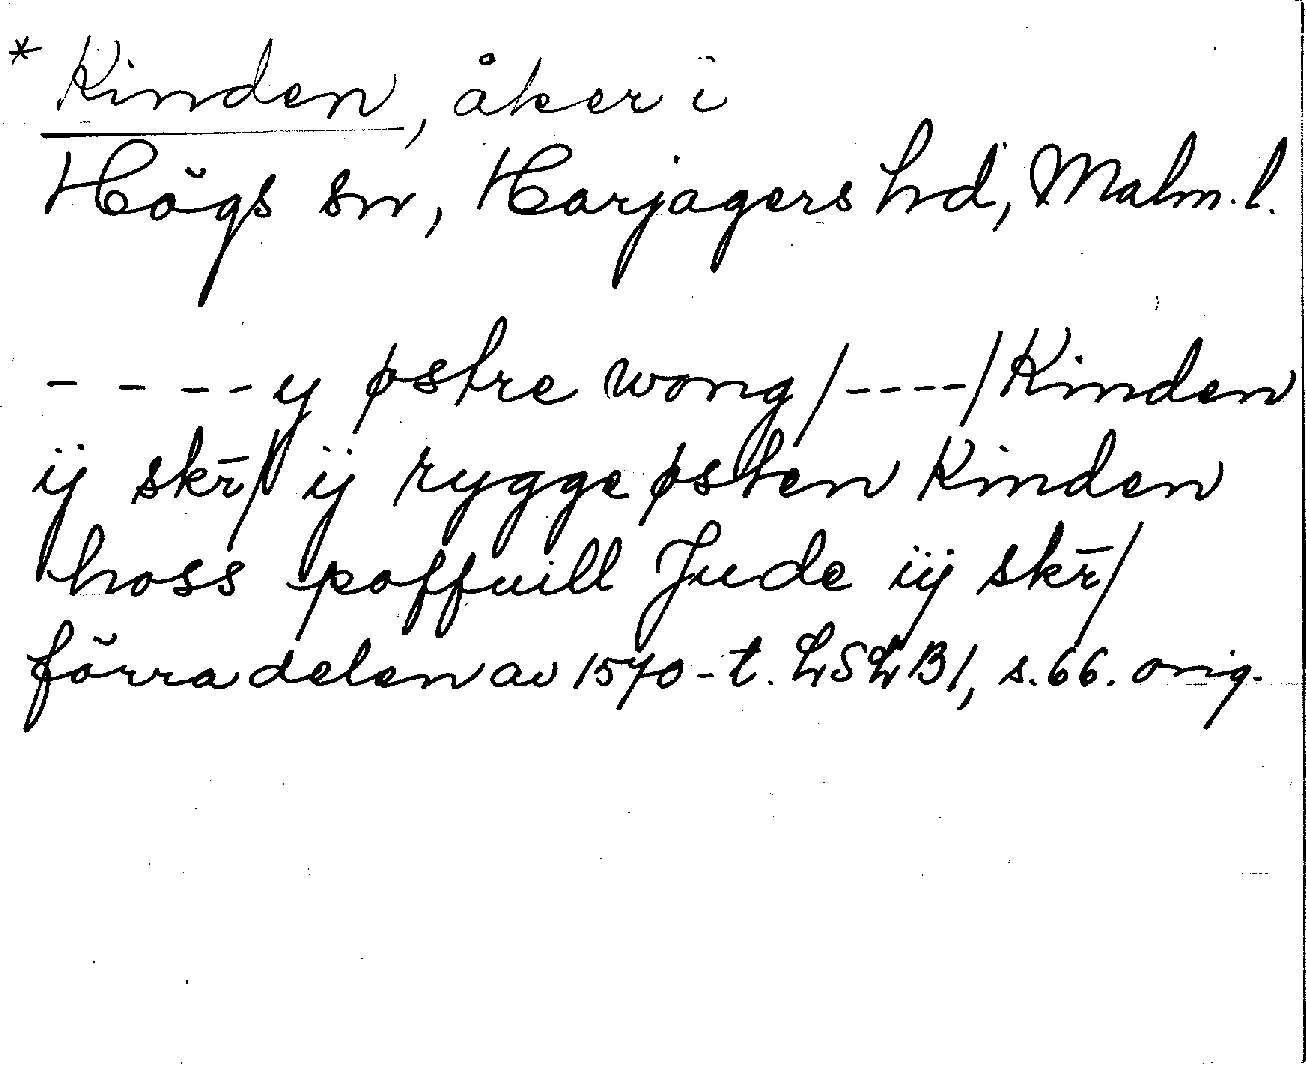 * Kinden, åker i
Högs sn, Harjagers hd, Malm. l.
- - - - y østre wong/----/Kinden
ij skr̄/ ij rygge østen Kinden
hoss poffuill Jude iij skr̄/
förra delen av 1570-t. LSLB1, s.66. orig.